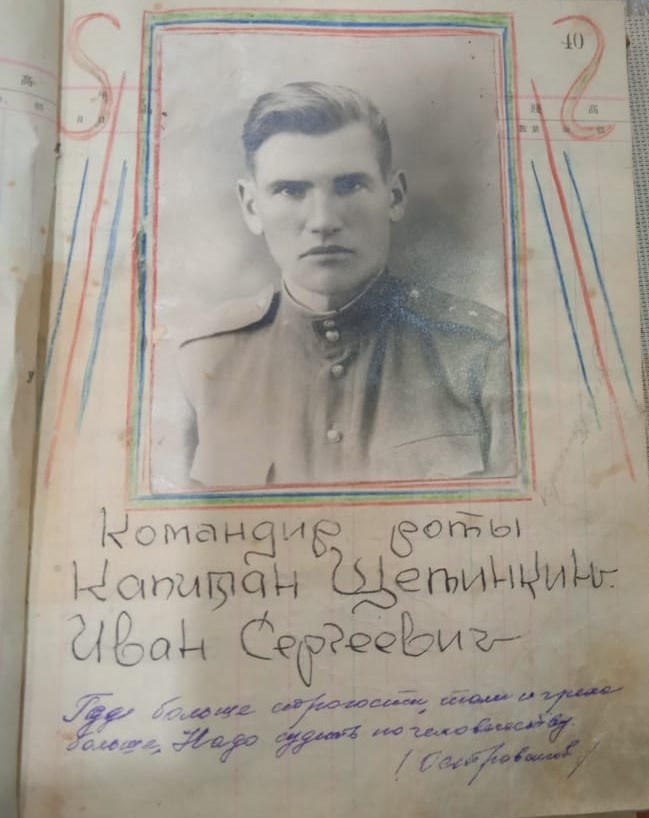 40
高
高
Командир роты
Капитан Щетинкинъ.
Иван Сергеевич
Где больше строгости, там и греха
больше, Надо судить по человечеству.
/ Островский /